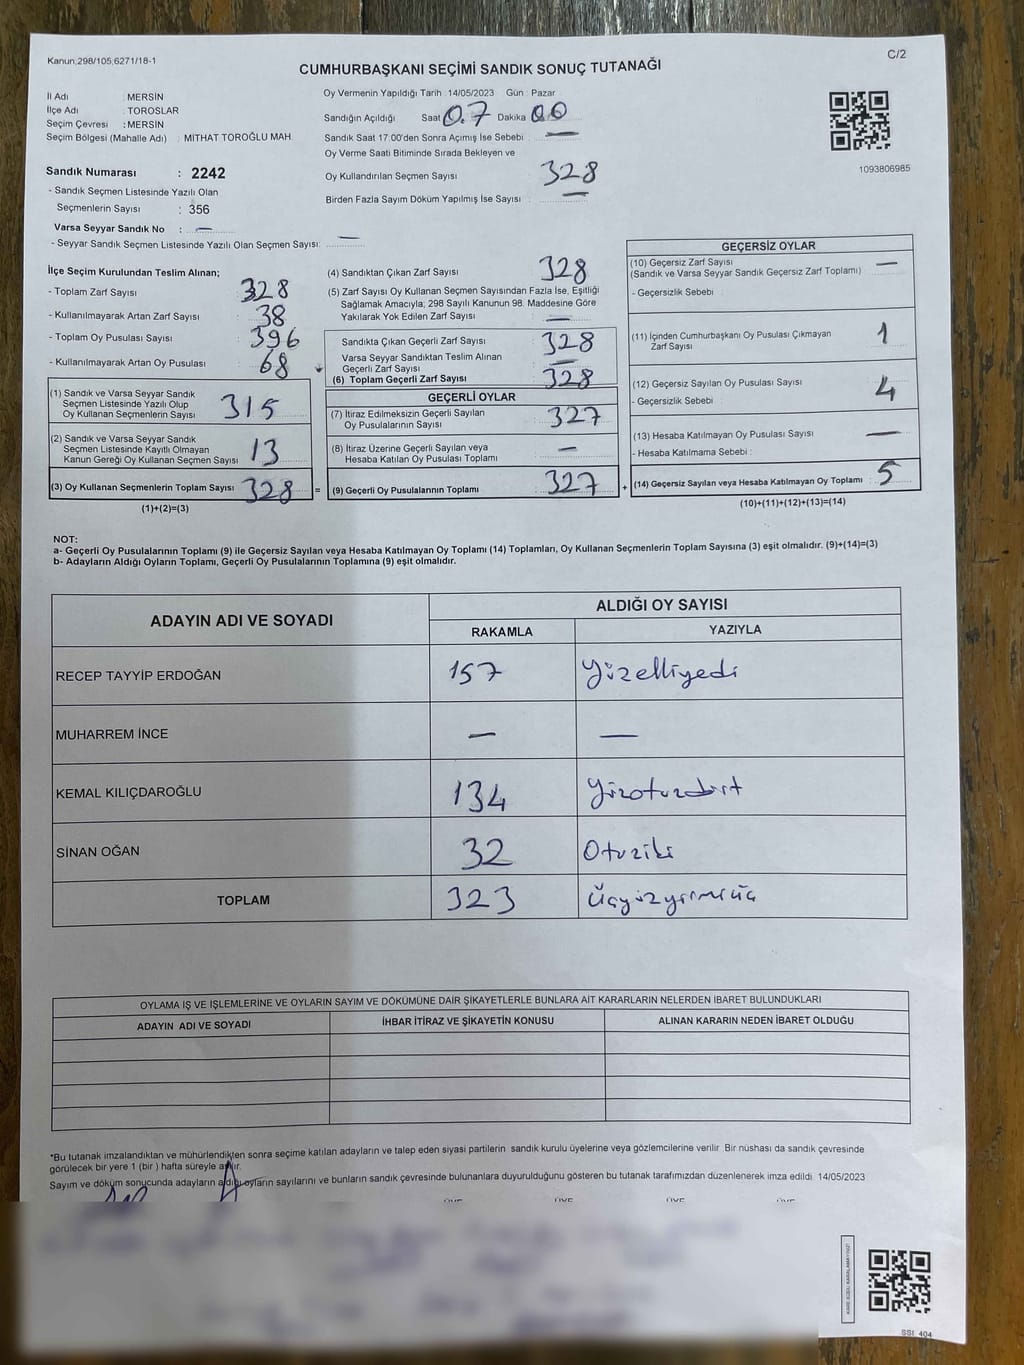 Kanun;298/105,6271/18-1
C/2
CUMHURBAŞKANI SEÇİMİ SANDIK SONUÇ TUTANAĞI
İl Adı : MERSİN
İlçe Adı : TOROSLAR
Seçim Çevresi : MERSİN
Seçim Bölgesi (Mahalle Adı) : MİTHAT TOROĞLU MAH.
Sandık Numarası : 2242
- Sandık Seçmen Listesinde Yazılı Olan
Seçmenlerin Sayısı : 356
Varsa Seyyar Sandık No : —
- Seyyar Sandık Seçmen Listesinde Yazılı Olan Seçmen Sayısı: —
Oy Vermenin Yapıldığı Tarih : 14/05/2023 Gün : Pazar
Sandığın Açıldığı Saat 0.7 Dakika 00
Sandık Saat 17:00'den Sonra Açımış İse Sebebi : —
Oy Verme Saati Bitiminde Sırada Bekleyen ve
Oy Kullandırılan Seçmen Sayısı : 328
Birden Fazla Sayım Döküm Yapılmış İse Sayısı : —
1093806985
İlçe Seçim Kurulundan Teslim Alınan;
- Toplam Zarf Sayısı : 328
- Kullanılmayarak Artan Zarf Sayısı : 38
- Toplam Oy Pusulası Sayısı : 396
- Kullanılmayarak Artan Oy Pusulası : 68
(1) Sandık ve Varsa Seyyar Sandık
Seçmen Listesinde Yazılı Olup
Oy Kullanan Seçmenlerin Sayısı : 315
(2) Sandık ve Varsa Seyyar Sandık
Seçmen Listesinde Kayıtlı Olmayan
Kanun Gereği Oy Kullanan Seçmen Sayısı : 13
(3) Oy Kullanan Seçmenlerin Toplam Sayısı : 328 =
(1)+(2)=(3)
(4) Sandıktan Çıkan Zarf Sayısı : 328
(5) Zarf Sayısı Oy Kullanan Seçmen Sayısından Fazla İse, Eşitliği
Sağlamak Amacıyla; 298 Sayılı Kanunun 98. Maddesine Göre
Yakılarak Yok Edilen Zarf Sayısı : —
Sandıkta Çıkan Geçerli Zarf Sayısı : 328
Varsa Seyyar Sandıktan Teslim Alınan
Geçerli Zarf Sayısı : —
(6) Toplam Geçerli Zarf Sayısı : 328
GEÇERLİ OYLAR
(7) İtiraz Edilmeksizin Geçerli Sayılan
Oy Pusulalarının Sayısı : 327
(8) İtiraz Üzerine Geçerli Sayılan veya
Hesaba Katılan Oy Pusulası Toplamı : —
(9) Geçerli Oy Pusulalarının Toplamı : 327 +
GEÇERSİZ OYLAR
(10) Geçersiz Zarf Sayısı : —
(Sandık ve Varsa Seyyar Sandık Geçersiz Zarf Toplamı)
- Geçersizlik Sebebi :
(11) İçinden Cumhurbaşkanı Oy Pusulası Çıkmayan
Zarf Sayısı : 1
(12) Geçersiz Sayılan Oy Pusulası Sayısı : 4
- Geçersizlik Sebebi :
(13) Hesaba Katılmayan Oy Pusulası Sayısı : —
- Hesaba Katılmama Sebebi :
(14) Geçersiz Sayılan veya Hesaba Katılmayan Oy Toplamı : 5
(10)+(11)+(12)+(13)=(14)
NOT:
a- Geçerli Oy Pusulalarının Toplamı (9) ile Geçersiz Sayılan veya Hesaba Katılmayan Oy Toplamı (14) Toplamları, Oy Kullanan Seçmenlerin Toplam Sayısına (3) eşit olmalıdır. (9)+(14)=(3)
b- Adayların Aldığı Oyların Toplamı, Geçerli Oy Pusulalarının Toplamına (9) eşit olmalıdır.
ADAYIN ADI VE SOYADI
ALDIĞI OY SAYISI
RAKAMLA YAZIYLA
RECEP TAYYİP ERDOĞAN 157 Yüzelliyedi
MUHARREM İNCE — —
KEMAL KILIÇDAROĞLU 134 Yüzotuzdört
SİNAN OĞAN 32 Otuziki
TOPLAM 323 Üçyüzyirmiüç
OYLAMA İŞ VE İŞLEMLERİNE VE OYLARIN SAYIM VE DÖKÜMÜNE DAİR ŞİKAYETLERLE BUNLARA AİT KARARLARIN NELERDEN İBARET BULUNDUKLARI
ADAYIN ADI VE SOYADI İHBAR İTİRAZ VE ŞİKAYETİN KONUSU ALINAN KARARIN NEDEN İBARET OLDUĞU
*Bu tutanak imzalandıktan ve mühürlendikten sonra seçime katılan adayların ve talep eden siyasi partilerin sandık kurulu üyelerine veya gözlemcilerine verilir. Bir nüshası da sandık çevresinde
görülecek bir yere 1 (bir) hafta süreyle asılır.
Sayım ve döküm sonucunda adayların aldığı oyların sayılarını ve bunların sandık çevresinde bulunanlara duyurulduğunu gösteren bu tutanak tarafımızdan düzenlenerek imza edildi. 14/05/2023
SSI_404